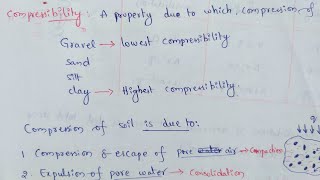 Compresibility: A property due to which, compression of
Gravel → lowest compresibility
sand
silt
clay → Highest compresibility.
Compression of soil is due to:
1. Compression & escape of pore air → Compaction
2. Expulsion of pore water → Consolidation